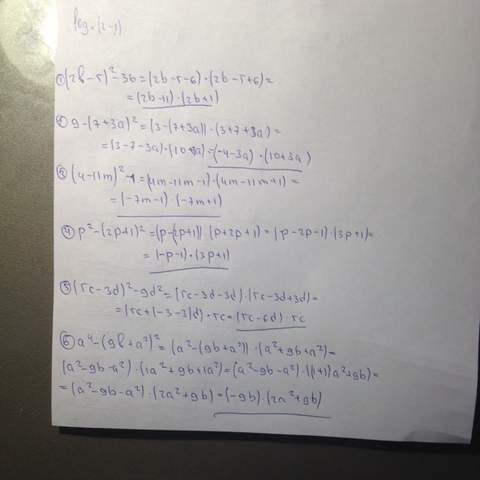 ① (2b-5)²-36=(2b-5-6)·(2b-5+6)=
=(2b-11)·(2b+1)
② 9-(7+3a)²=(3-(7+3a))·(3+7+3a)=
=(3-7-3a)·(10+3a)=(-4-3a)·(10+3a)
③ (4-11m)²-1=(4m-11m-1)·(4m-11m+1)=
=(-7m-1)·(-7m+1)
④ p²-(2p+1)²=(p-(2p+1))·(p+2p+1)=(p-2p-1)·(3p+1)=
=(-p-1)·(3p+1)
⑤ (5c-3d)²-9d²=(5c-3d-3d)·(5c-3d+3d)=
=(5c+(-3-3)d)·5c=(5c-6d)·5c
⑥ a⁴-(9b+a²)²=(a²-(9b+a²))·(a²+9b+a²)=
(a²-9b-a²)·(1a²+9b+1a²)=(a²-9b-a²)·((1+1)a²+9b)=
=(a²-9b-a²)·(2a²+9b)=(-9b)·(2a²+9b)